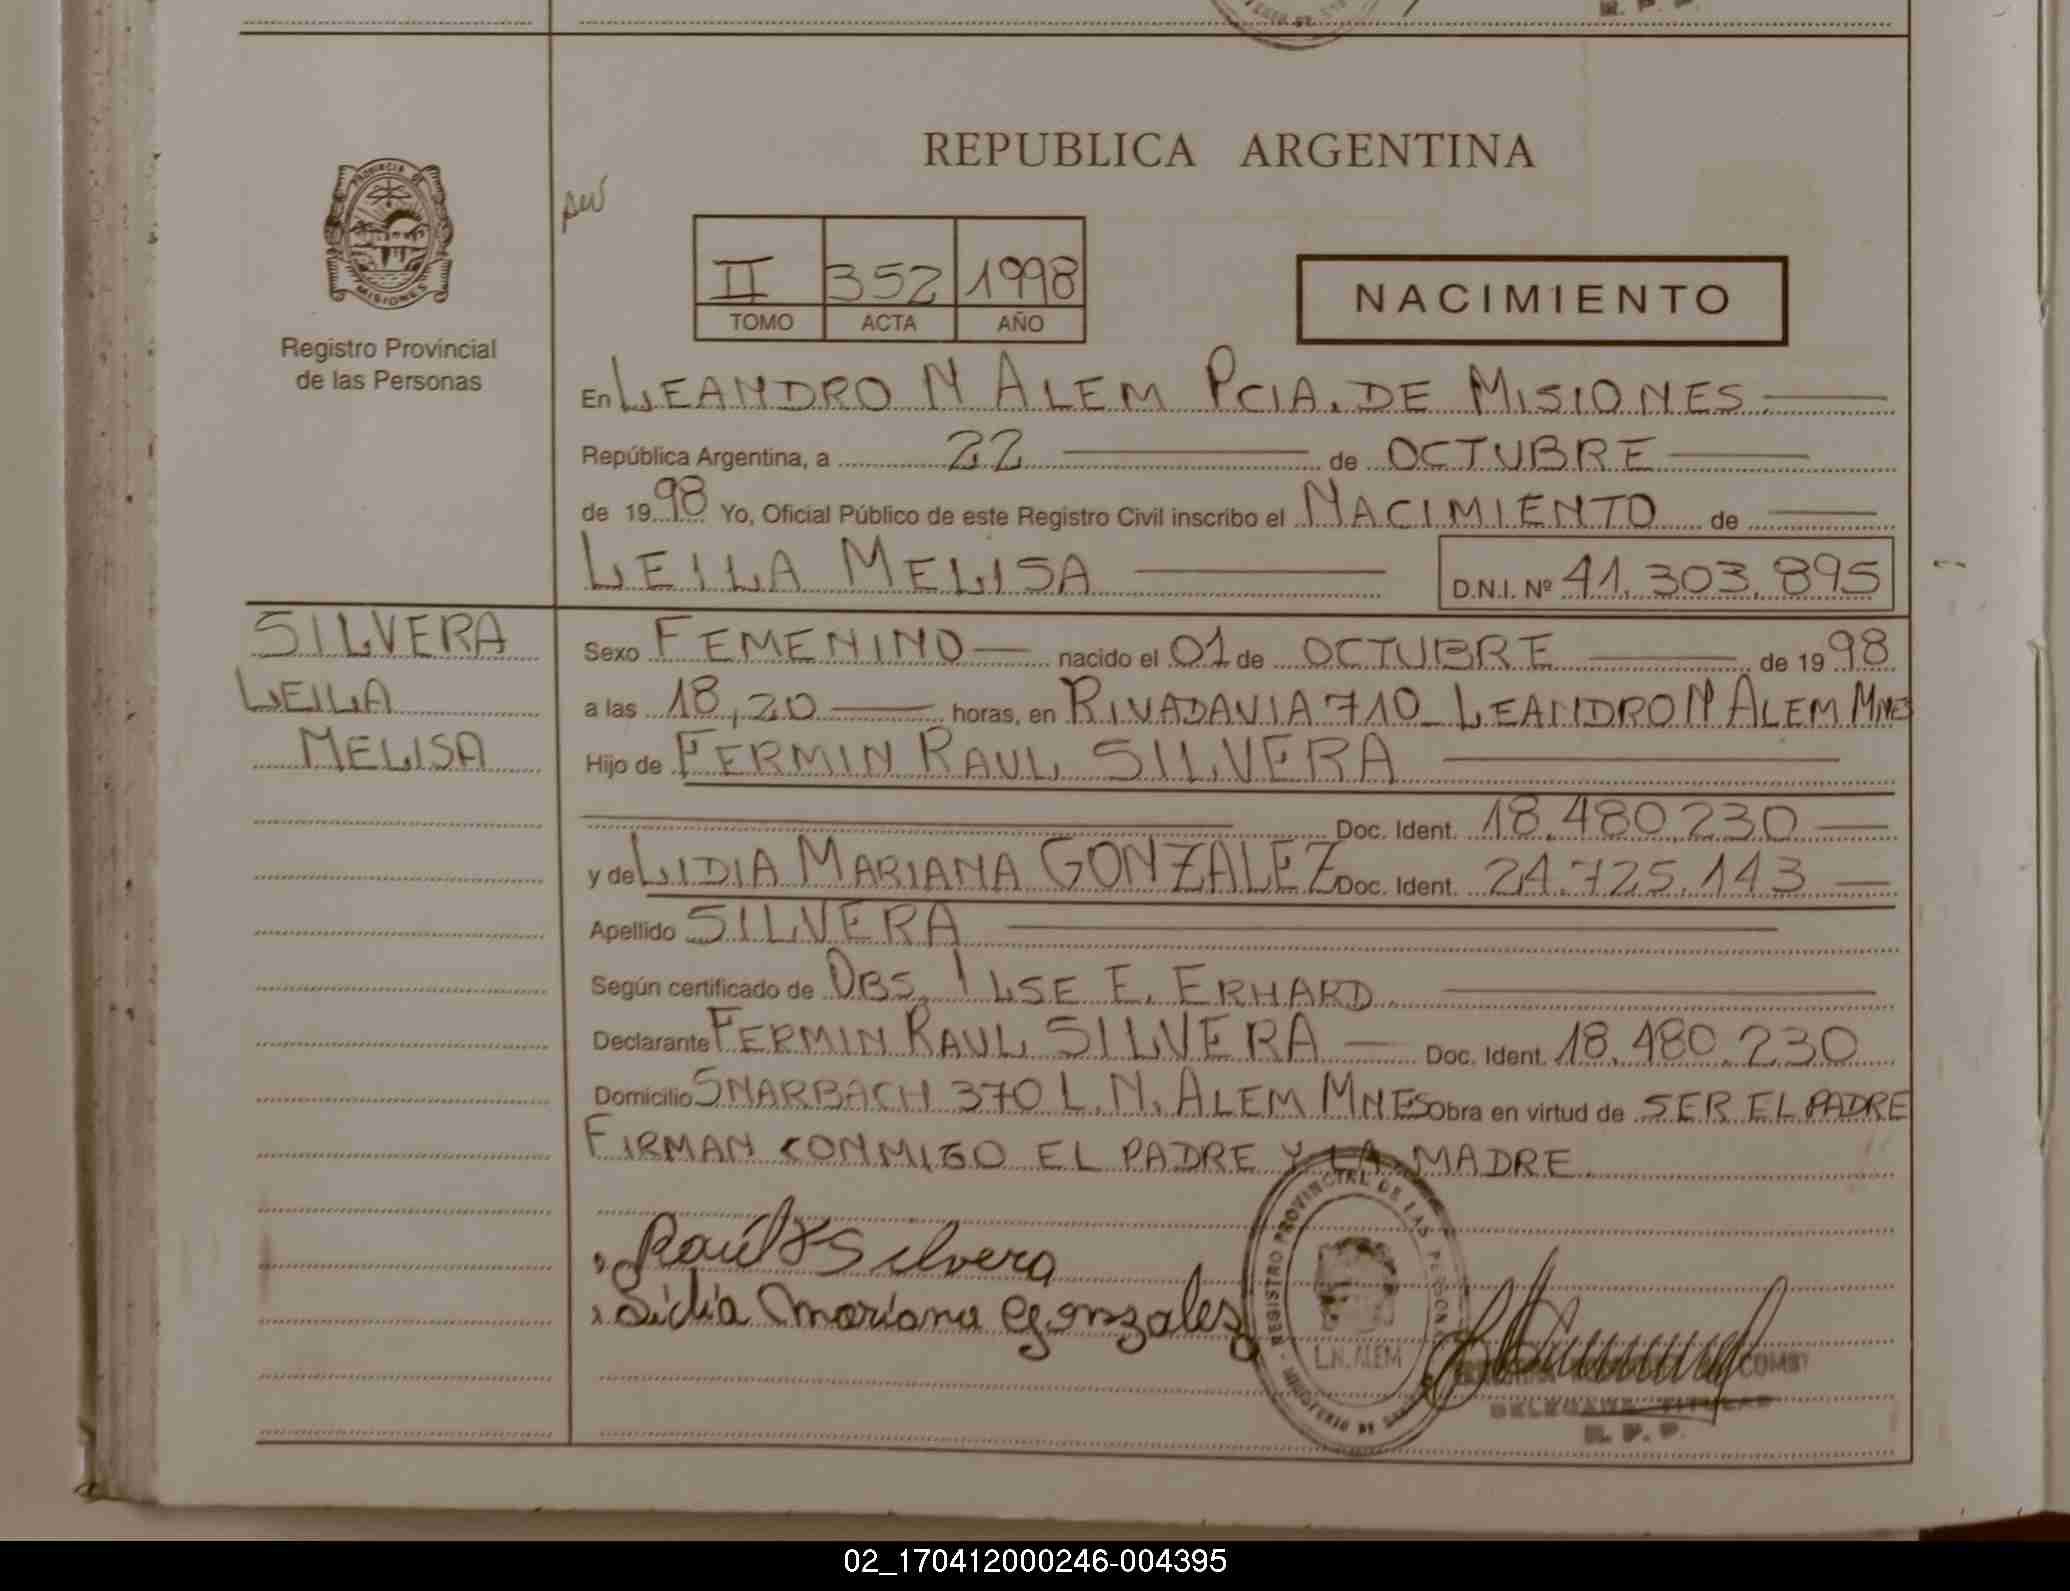 REPUBLICA ARGENTINA
PROVINCIA DE
MISIONES
Registro Provincial
de las Personas
II 352 1998
TOMO ACTA AÑO
NACIMIENTO
En LEANDRO N ALEM PCIA. DE MISIONES
República Argentina, a 22 de OCTUBRE
de 1998 Yo, Oficial Público de este Registro Civil inscribo el NACIMIENTO de
LEILA MELISA D.N.I. Nº 41.303.895
SILVERA
LEILA
MELISA
Sexo FEMENINO nacido el 01 de OCTUBRE de 1998
a las 18,20 horas, en RIVADAVIA 710 _ LEANDRO N ALEM MNES
Hijo de FERMIN RAUL SILVERA
Doc. Ident. 18.480.230
y de LIDIA MARIANA GONZALEZ Doc. Ident. 24.725.143
Apellido SILVERA
Según certificado de OBS. ILSE E. ERHARD
Declarante FERMIN RAUL SILVERA Doc. Ident. 18.480.230
Domicilio SNARBACH 370 L.N. ALEM MNES Obra en virtud de SER EL PADRE
FIRMAN CONMIGO EL PADRE Y LA MADRE.
Raúl F Silvera
Lidia Mariana Gonzalez
REGISTRO PROVINCIAL DE LAS PERSONAS
L.N. ALEM
MINISTERIO DE
DELEGADA TITULAR
R. P. P.
02_170412000246-004395